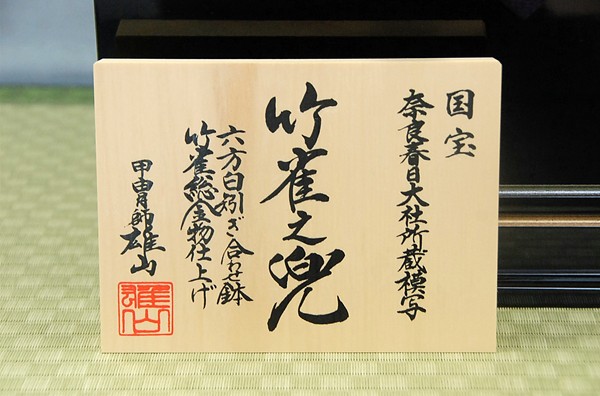 国宝
奈良春日大社所蔵模写
竹雀之兜
六方白矧ぎ合わせ鉢
竹雀総金物仕上げ
甲冑師雄山
雄山